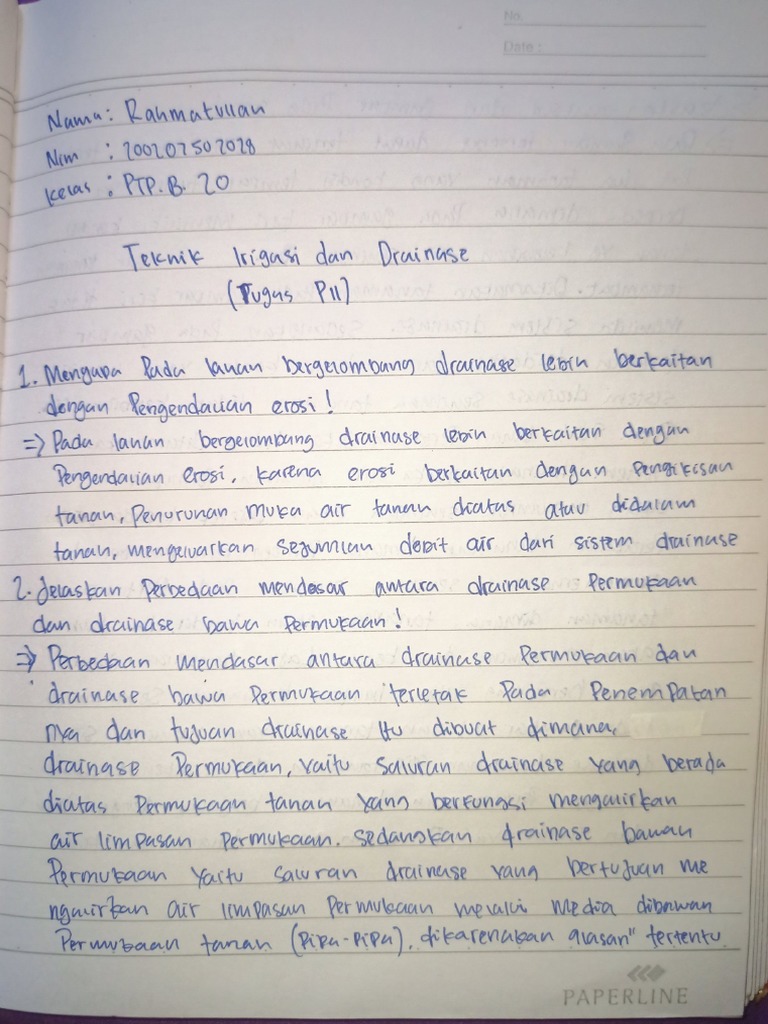 No.
Date :
Nama : Rahmatullah
Nim : 200207502028
Kelas : PTP. B. 20
Teknik Irigasi dan Drainase
(Tugas P11)
1. Mengapa Pada lahan bergelombang drainase lebih berkaitan
dengan Pengendalian erosi !
=> Pada lahan bergelombang drainase lebih berkaitan dengan
Pengendalian erosi, karena erosi berkaitan dengan Pengikisan
tanah, Penurunan muka air tanah diatas atau didalam
tanah, mengeluarkan sejumlah debit air dari sistem drainase
2. Jelaskan Perbedaan mendasar antara drainase Permukaan
dan drainase bawa Permukaan !
=> Perbedaan mendasar antara drainase Permukaan dan
drainase bawa Permukaan terletak Pada Penempatan
nya dan tujuan drainase itu dibuat dimana,
drainase Permukaan, yaitu saluran drainase yang berada
diatas Permukaan tanah yang berfungsi mengalirkan
air limpasan permukaan. sedangkan drainase bawah
Permukaan yaitu saluran drainase yang bertujuan me
ngalirkan air limpasan Permukaan melalui media dibawah
Permukaan tanah (Pipa-Pipa), dikarenakan alasan" tertentu
PAPERLINE